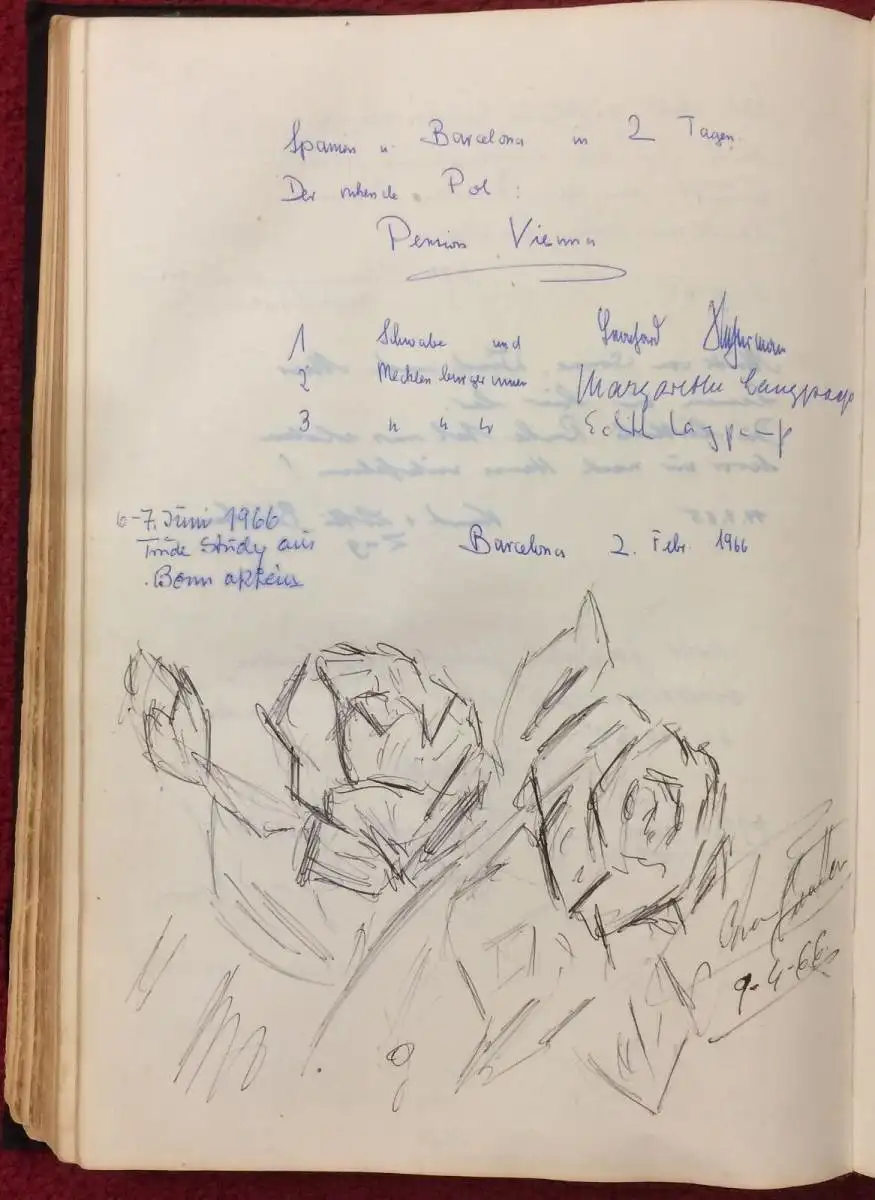 Spanien u. Barcelona in 2 Tagen.
Der ruhende Pol :
Pension Vienna
1 Schwabe und
2 Mecklenburgerinnen Margarethe Langpaap
3 " " " Edith Langpaap
6-7. Juni 1966
Trude Study aus
Bonn
Barcelona 2. Febr. 1966
9-4-66